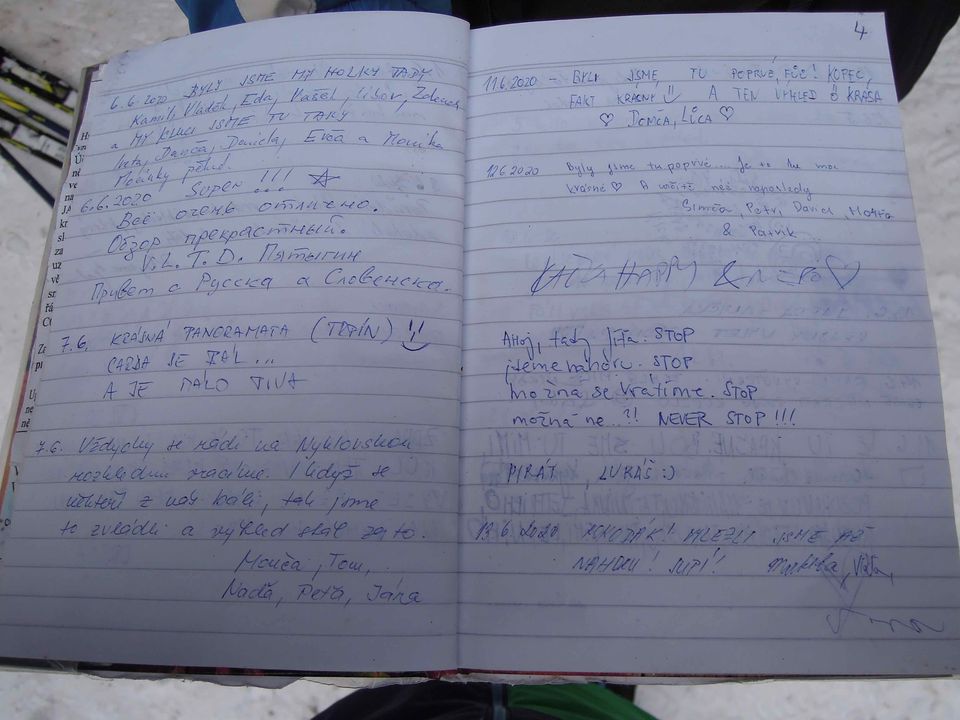 6.6.2020 BYLY JSME MY HOLKY TADY
Kamil, Vladek, Eda, Vašek, Libor, Zdeněk
a MY KLUCI JSME TU TAKY
Danča, Daniela, Evča a Monika
6.6.2020 SUPER !!!
Всё очень отлично.
Обзор прекрастный.
V. L. T. D. Пятыгин
Привет с Русска а Словенска.
7.6. KRÁSNÁ PANORAMATA (TRPÍN)
SE BÁL...
A JE MÁLO PIVA
7.6. Vždycky se rádi na Nyklovskou
rozhlednu vracíme. I když se
někteří z nás báli, tak jsme
to zvládli a výhled stál za to.
Monča, Tom,
Naďa, Peťa, Jána
4
11.6.2020 - BYLI JSME TU POPRVÉ, FŮČ! KOPEC,
FAKT KRÁSNÝ A TEN VÝHLED Ö KRÁSA
♡ DOMČA, LÍCA ♡
12.6.2020 Byly jsme tu poprvé... Je to tu moc
krásné ♡ A určitě né naposledy
Simča, Petr, David,
& Patrik
HAPPY & NERO ♡
Ahoj, tady Jíťa. STOP
jsme nahoru. STOP
možná se vrátíme. STOP
možná ne..?! NEVER STOP!!!
PIRÁT, LUKÁŠ :)
13.6.2020 VYLEZLI JSME AŽ
NAHORU! JUPÍ!